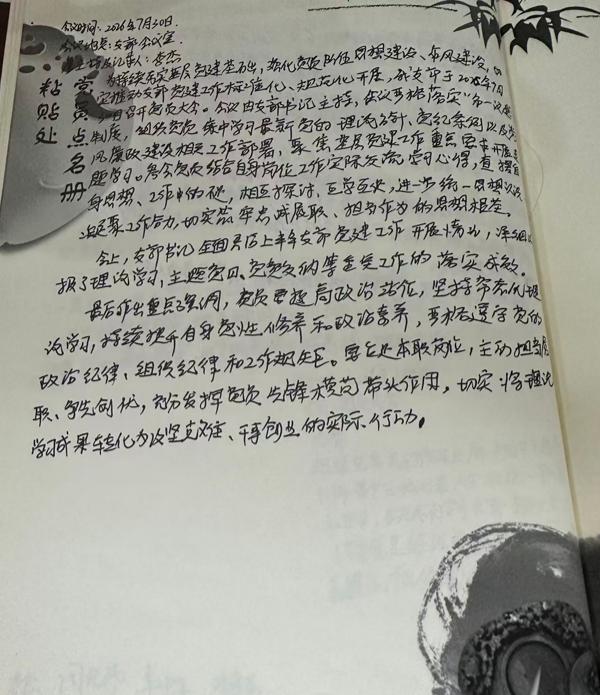 会议时间：2026年7月30日.
会议地点：支部会议室
主持与记录人：李杰
党员点名册
粘贴处
为持续夯实基层党建基石出，强化党员队伍思想建设、作风建设，切
实推动支部党建工作标准化、规范化开展，我支部于2026年7月
日召开党员大会。会议由支部书记主持，会议严格落实"三会一课
制度，组织党员集中学习最新党的理论方针、党纪条例以及党
风廉政建设相关工作部署，聚焦基层党建工作重点要求开展
题学习。各个党员结合自身岗位工作实际交流学习心得，查摆自
身思想、工作中的，相互探讨、互学互鉴，进一步统一思想认识
凝聚工作合力，切实筑牢忠诚履职、担当作为的思想根基。
会上，支部书记全面累上半年支部党建工作开展情况，详细
报了理论学习，主题党日、党费交纳等重要工作的落实成效。
最后作出重点强调，党员要提高政治站位，坚持常态化理
论学习，持续提升自身党性修养和政治素养，严格遵守党的
政治纪律、组织纪律和工作规矩。要立足本职岗位，主动担当履
职、争先创优，充分发挥党员先锋模范带头作用，切实将理论
学习成果转化为攻坚克难、干事创业的实际行动。